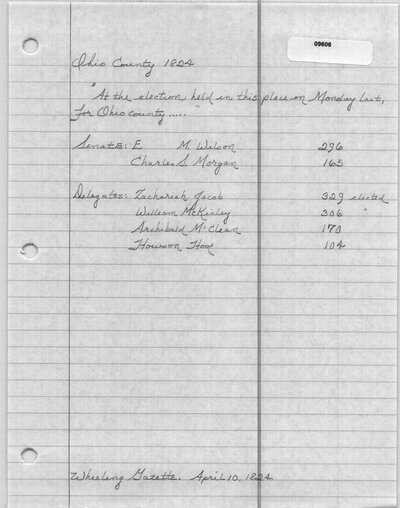 09606
Ohio County 1824
"At the election held in this place on Monday last,
for Ohio county..... "
Senate: E M. Wilson 296
Charles S. Morgan 165
Delegates: Zachariah Jacob 329 elected
William McKinley 306 "
Archibald McClean 170
Howson Hooe 104
Wheeling Gazette. April 10, 1824